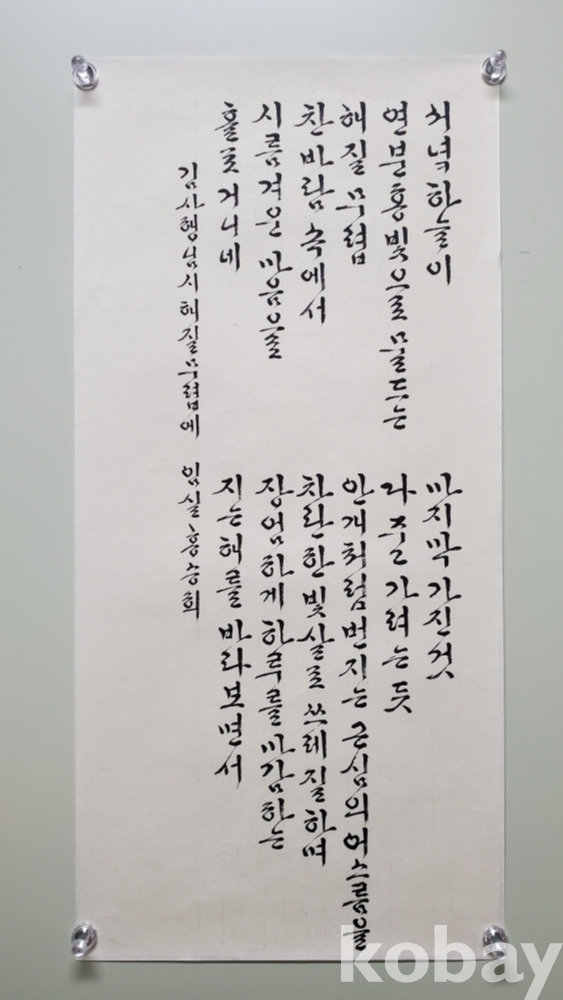 저녁 하늘이
연분홍 빛으로 물드는
해질 무렵
찬 바람 속에서
시름겨운 마음을
홀로 거니네
마지막 가진 것
다 주고 가려는 듯
안개처럼 번지는 근심의 어스름을
찬란한 빛살로 쓰레질하며
장엄하게 하루를 마감하는
지는 해를 바라보면서
김사행님 시 해질 무렵에 임실 홍승희
kobay